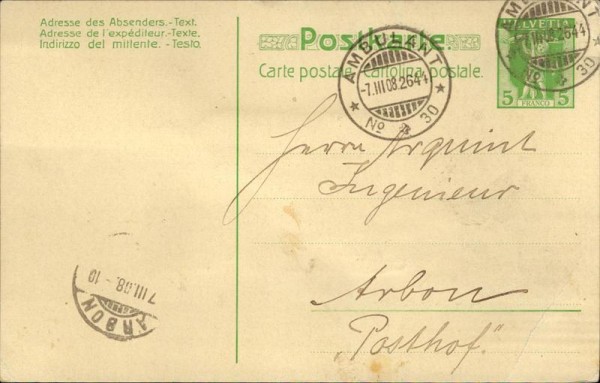 Adresse des Absenders.-Text.
Adresse de l'expéditeur.-Texte.
Indirizzo del mittente. -Testo.
Postkarte.
Carte postale. Cartolina postale.
AMBULANT
-7.III.08.2644
No 30
HELVETIA
5 FRANCO 5
AMBULANT
-7.III.08.2644
No 30
Herrn Arquint
Ingenieur
Arbon
„Posthof."
7.III.08.-10
ARBON